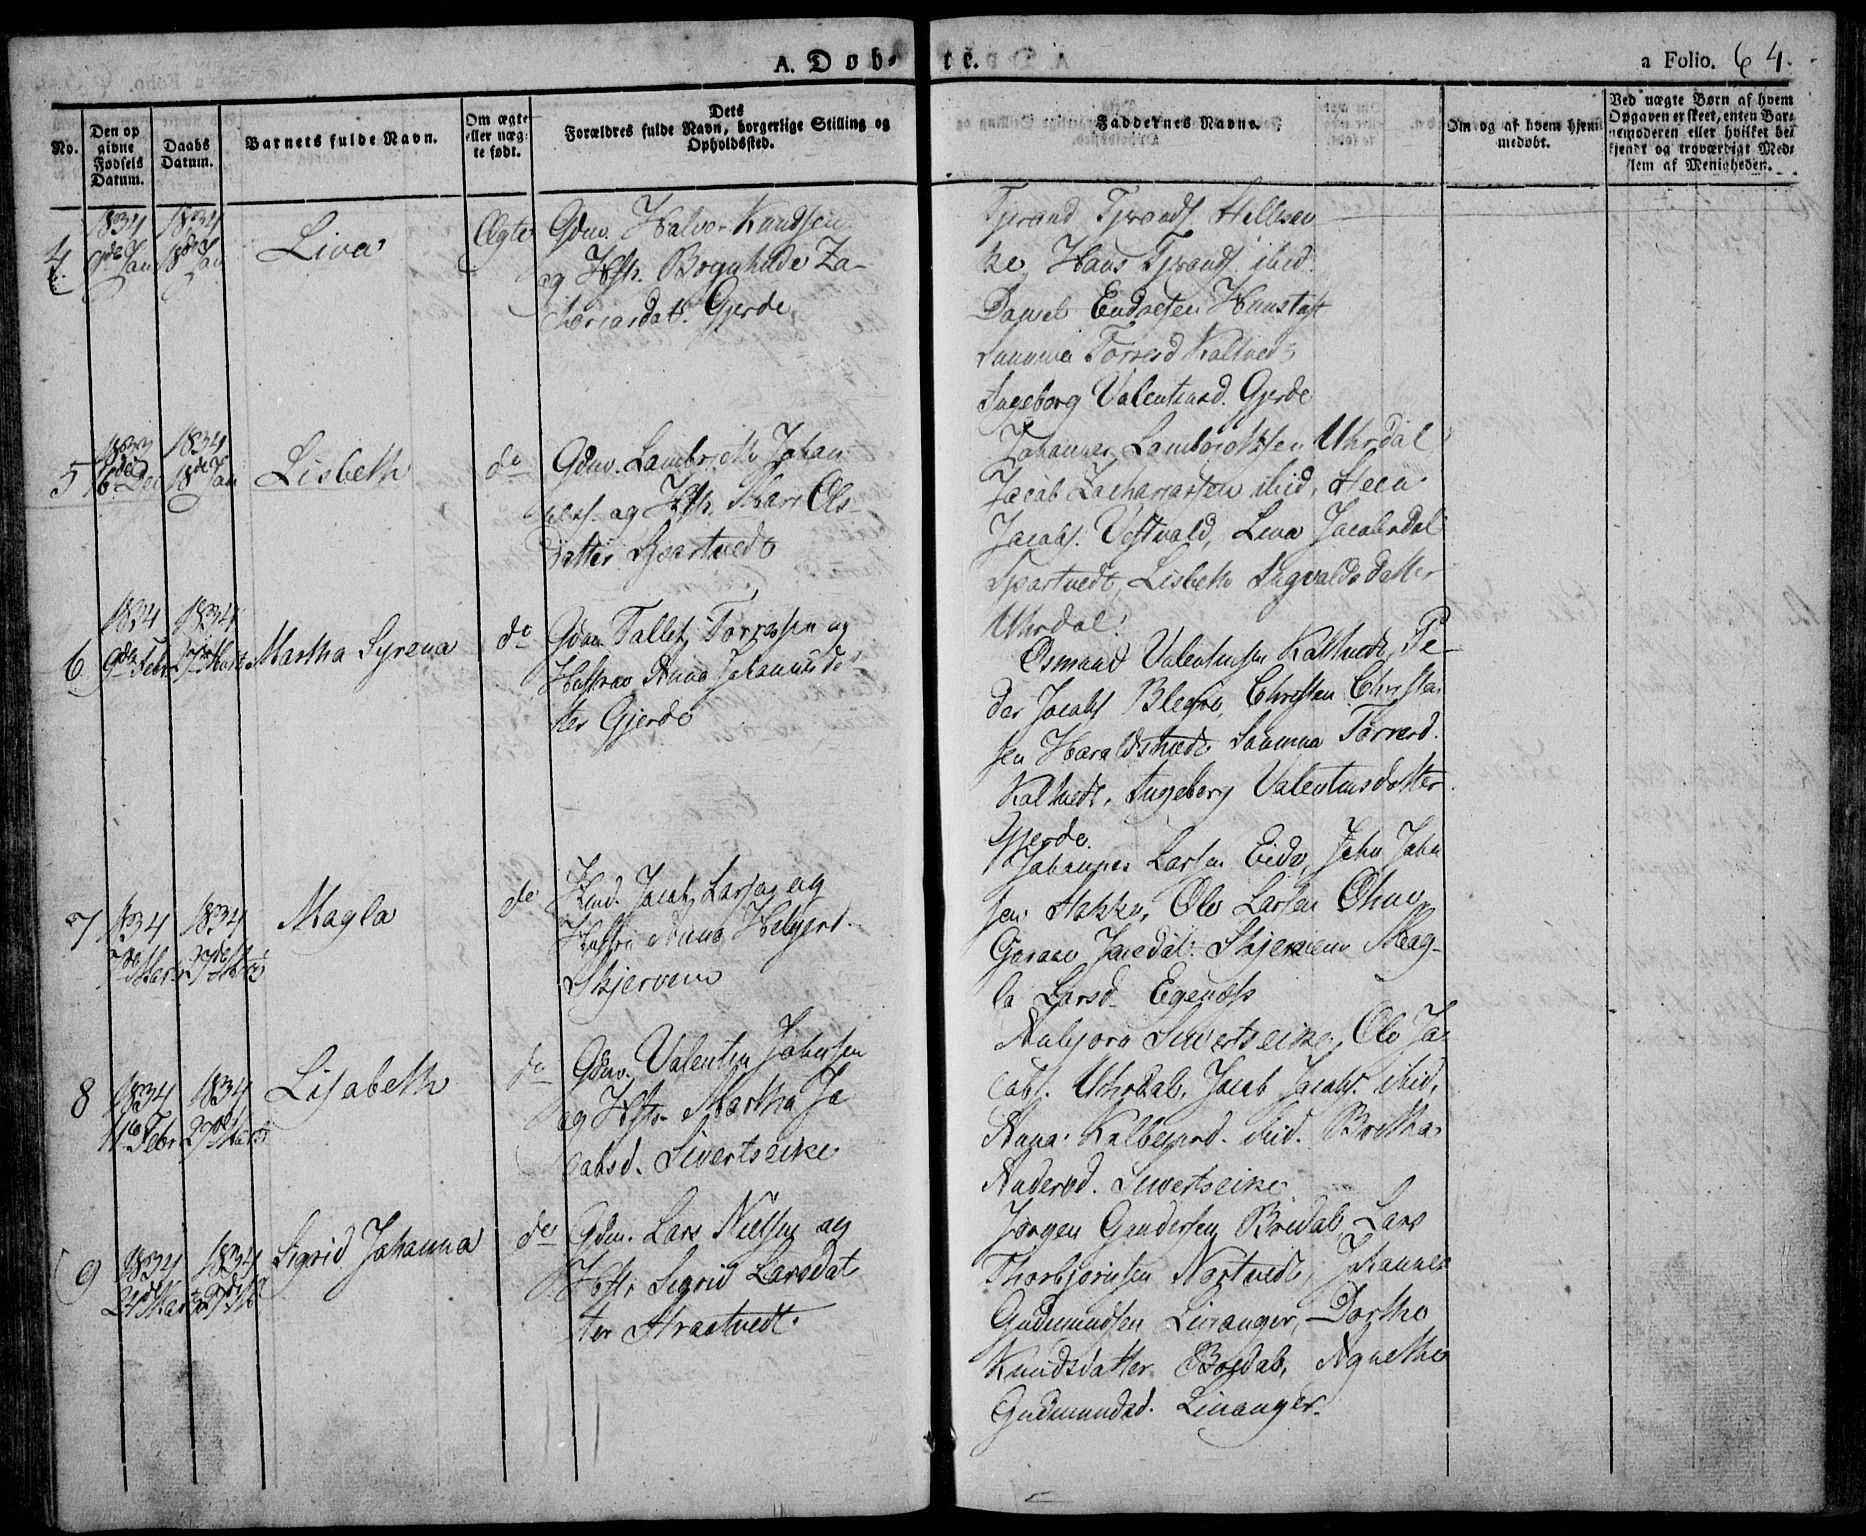 A. Døb-
te.
a Folio. 64.
No.
Den op
givne
Fødsels
Datum.
Daabs
Datum.
Barnets fulde Navn.
Om ægte
eller uæg-
te født.
Dets
Forældres fulde Navn, borgerlige Stilling og
Opholdssted.
Faddernes Navne.
Om og af hvem hjem-
medøbt.
Ved uægte Børn af hvem
Opgaven er skeet, enten Bar-
nemoderen eller hvilket be-
kjendt og troværdigt Med-
lem af Menigheden.
4.
1834
9de Jan
1834
18de Jan
Liva
Ægte
Gdm. Halvor Knudsen
og Hst. Bognhilde Za-
chariasdat. Gjerde
Tjerand Tjerands.
Hans Tjerands. ibid.
Daniel Endresen
Torresd Kaltvedt
Ingeborg Valentinsd. Gjerde
5
1833
16de Dec
1834
18de Jan
Lisbeth
do
Gdm. Lambregth Johan-
nes. og Hst. Mari Ols-
Datter Spartvedt
Johannes Lambregthsen Uhrdal
Jacob Zachariasen ibid, Steen
Jacobs. Vestvold, Liva Jacobsdat
Spartvedt, Lisbeth Ingvaldsdatter
Uhrdal.
6
1834
9de Febr
1834
Martha Syrena
do
Gdm Tallet Torresen og
Hustrue Anna Johannesdat-
ter Gjerde
Osmund Valentinsen Kaltvedt, Pe-
der Jacobs Blegne, Christen Christen-
sen Haraldstvedt Sunnva Torresd.
Kaltvedt, Ingeborg Valentinsdatter
Gjerde.
7
1834
7de Marts
1834
27de Marts
Magla
do
Huusm. Jacob Larsen og
Hustru Anna Helgesd.
Skjervem
Johannes Larsen Eide, John John-
sen Stakke, Ole Larsen
Skjervem Mag-
la Larsd. Egenæss
8
1834
11te Febr
1834
27de Marts
Lisabeth
do
Gdm. Valentin Johnsen
og Hstr. Martha Ja-
cobsd. Sivertseike
Aabjora Sivertseike, Ole Ja-
cobs. Uhrdal, Jacob Jacobs. ibid,
Anna Kolbegsd. ibid. Bretha
Andersd. Sivertseike
9
1834
24de Marts
1834
Sigrid Johanna
do
Gdm. Lars Nielsen og
Hstr Sigrid Larsdat-
ter Araetvedt.
Jørgen Gundersen Bredal, Lars
Thorbjørnsen Nortvedt, Johannes
Gudmundsen Linanger, Dorthe
Knudsdatter Bredal, Agnethe
Gudmundsd. Linanger.